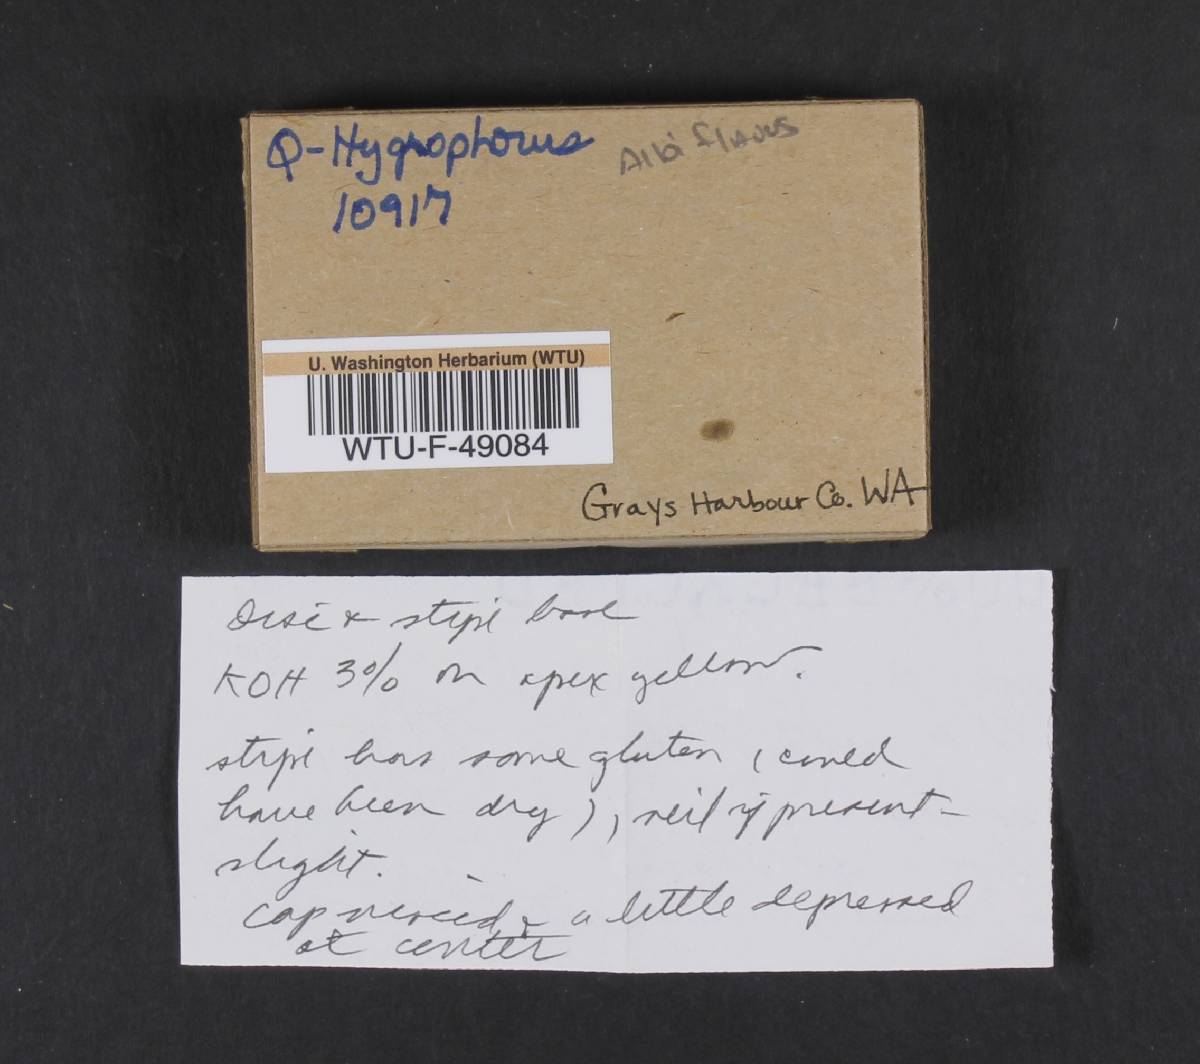 Q-Hygrophorus Albiflavus
10917
U. Washington Herbarium (WTU)
WTU-F-49084
Grays Harbour Co. WA
Disc & stipe base
KOH 3% on apex yellow.
stipe has some gluten, (could
have been dry), veil if present-
slight.
cap viscid & a little depressed
at center